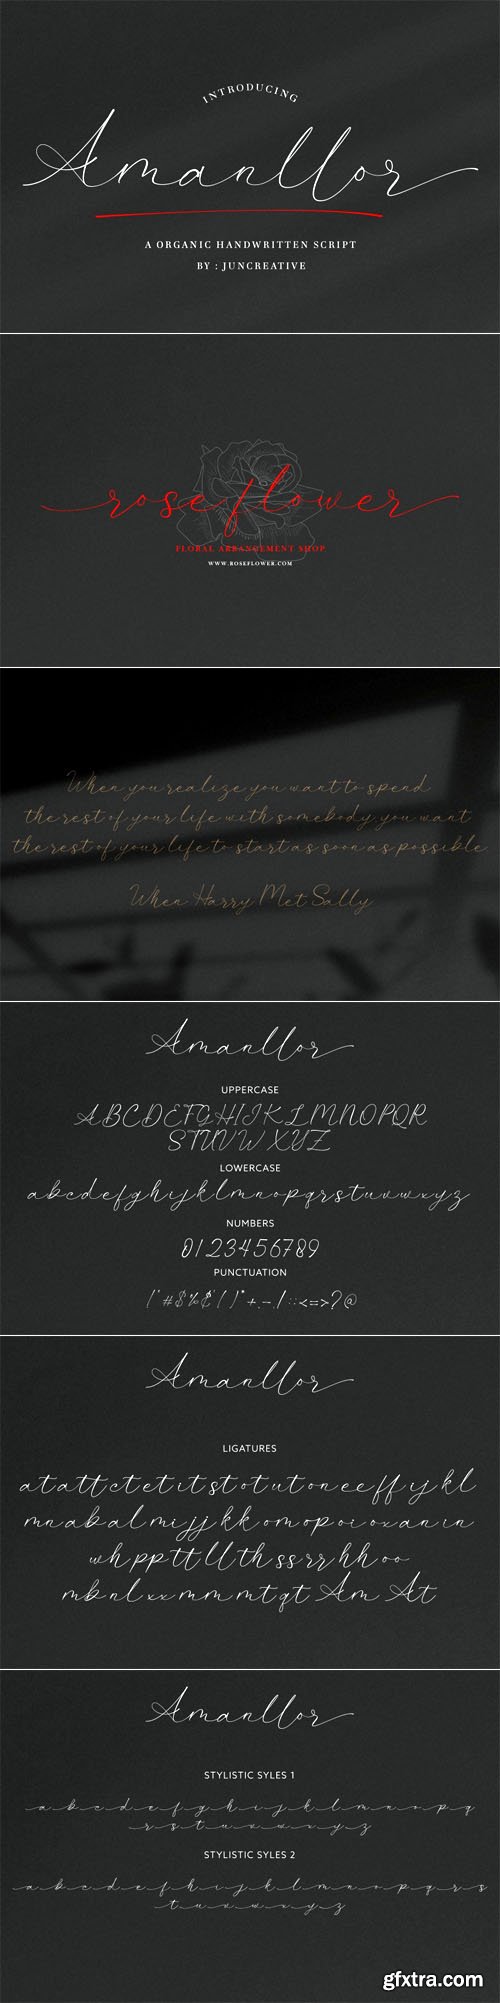 INTRODUCING
Amanllor
A ORGANIC HANDWRITTEN SCRIPT
BY : JUNCREATIVE
rose flower
FLORAL ARRANGEMENT SHOP
WWW.ROSEFLOWER.COM
When you realize you want to spend
the rest of your life with somebody, you want
the rest of your life to start as soon as possible.
When Harry Met Sally
Amanllor
UPPERCASE
ABCDEFGHIJKLMNOPQR
STUVWXYZ
LOWERCASE
abcdefghijklmnopqrstuvwxyz
NUMBERS
0123456789
PUNCTUATION
!"#$%&'()*+,-./:;<=>?@
Amanllor
LIGATURES
at att ct et it st ot ut on ee ff ij kl
mn ab al mi jj kk om op oi ox an in
wh pp tt ll th ss rr hh oo
mb nl xx mm mt qt Am At
Amanllor
STYLISTIC SYLES 1
a b c d e f g h i j k l m n o p q
r s t u v w x y z
STYLISTIC SYLES 2
a b c d e f g h i j k l m n o p q r s
t u v w x y z
gfxtra.com